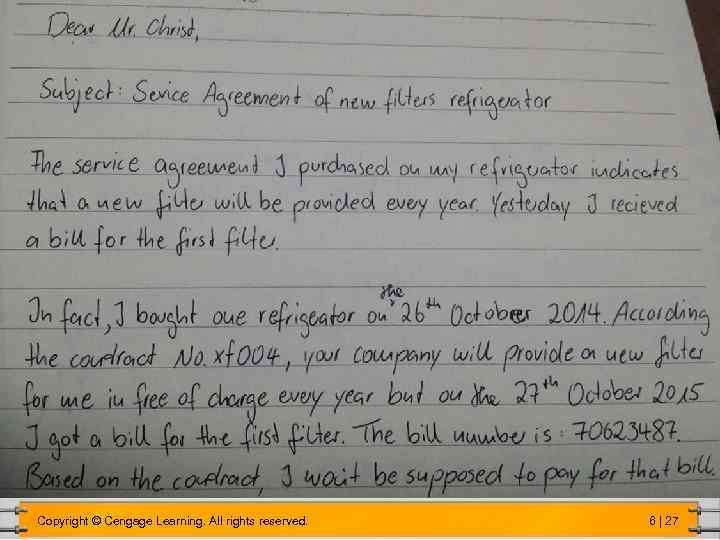 Dear Mr. Christ,
Subject: Sevice Agreement of new filters refrigerator
The service agreement I purchased on my refrigerator indicates
that a new filter will be provided every year. Yesterday I recieved
a bill for the first filter.
In fact, I bought one refrigeator on the 26th October 2014. According
the contract No. xf004, your company will provide a new filter
for me in free of charge every year but on the 27th October 2015
I got a bill for the first filter. The bill number is: 70623487.
Based on the contract, I won't be supposed to pay for that bill.
Copyright © Cengage Learning. All rights reserved.
6 | 27